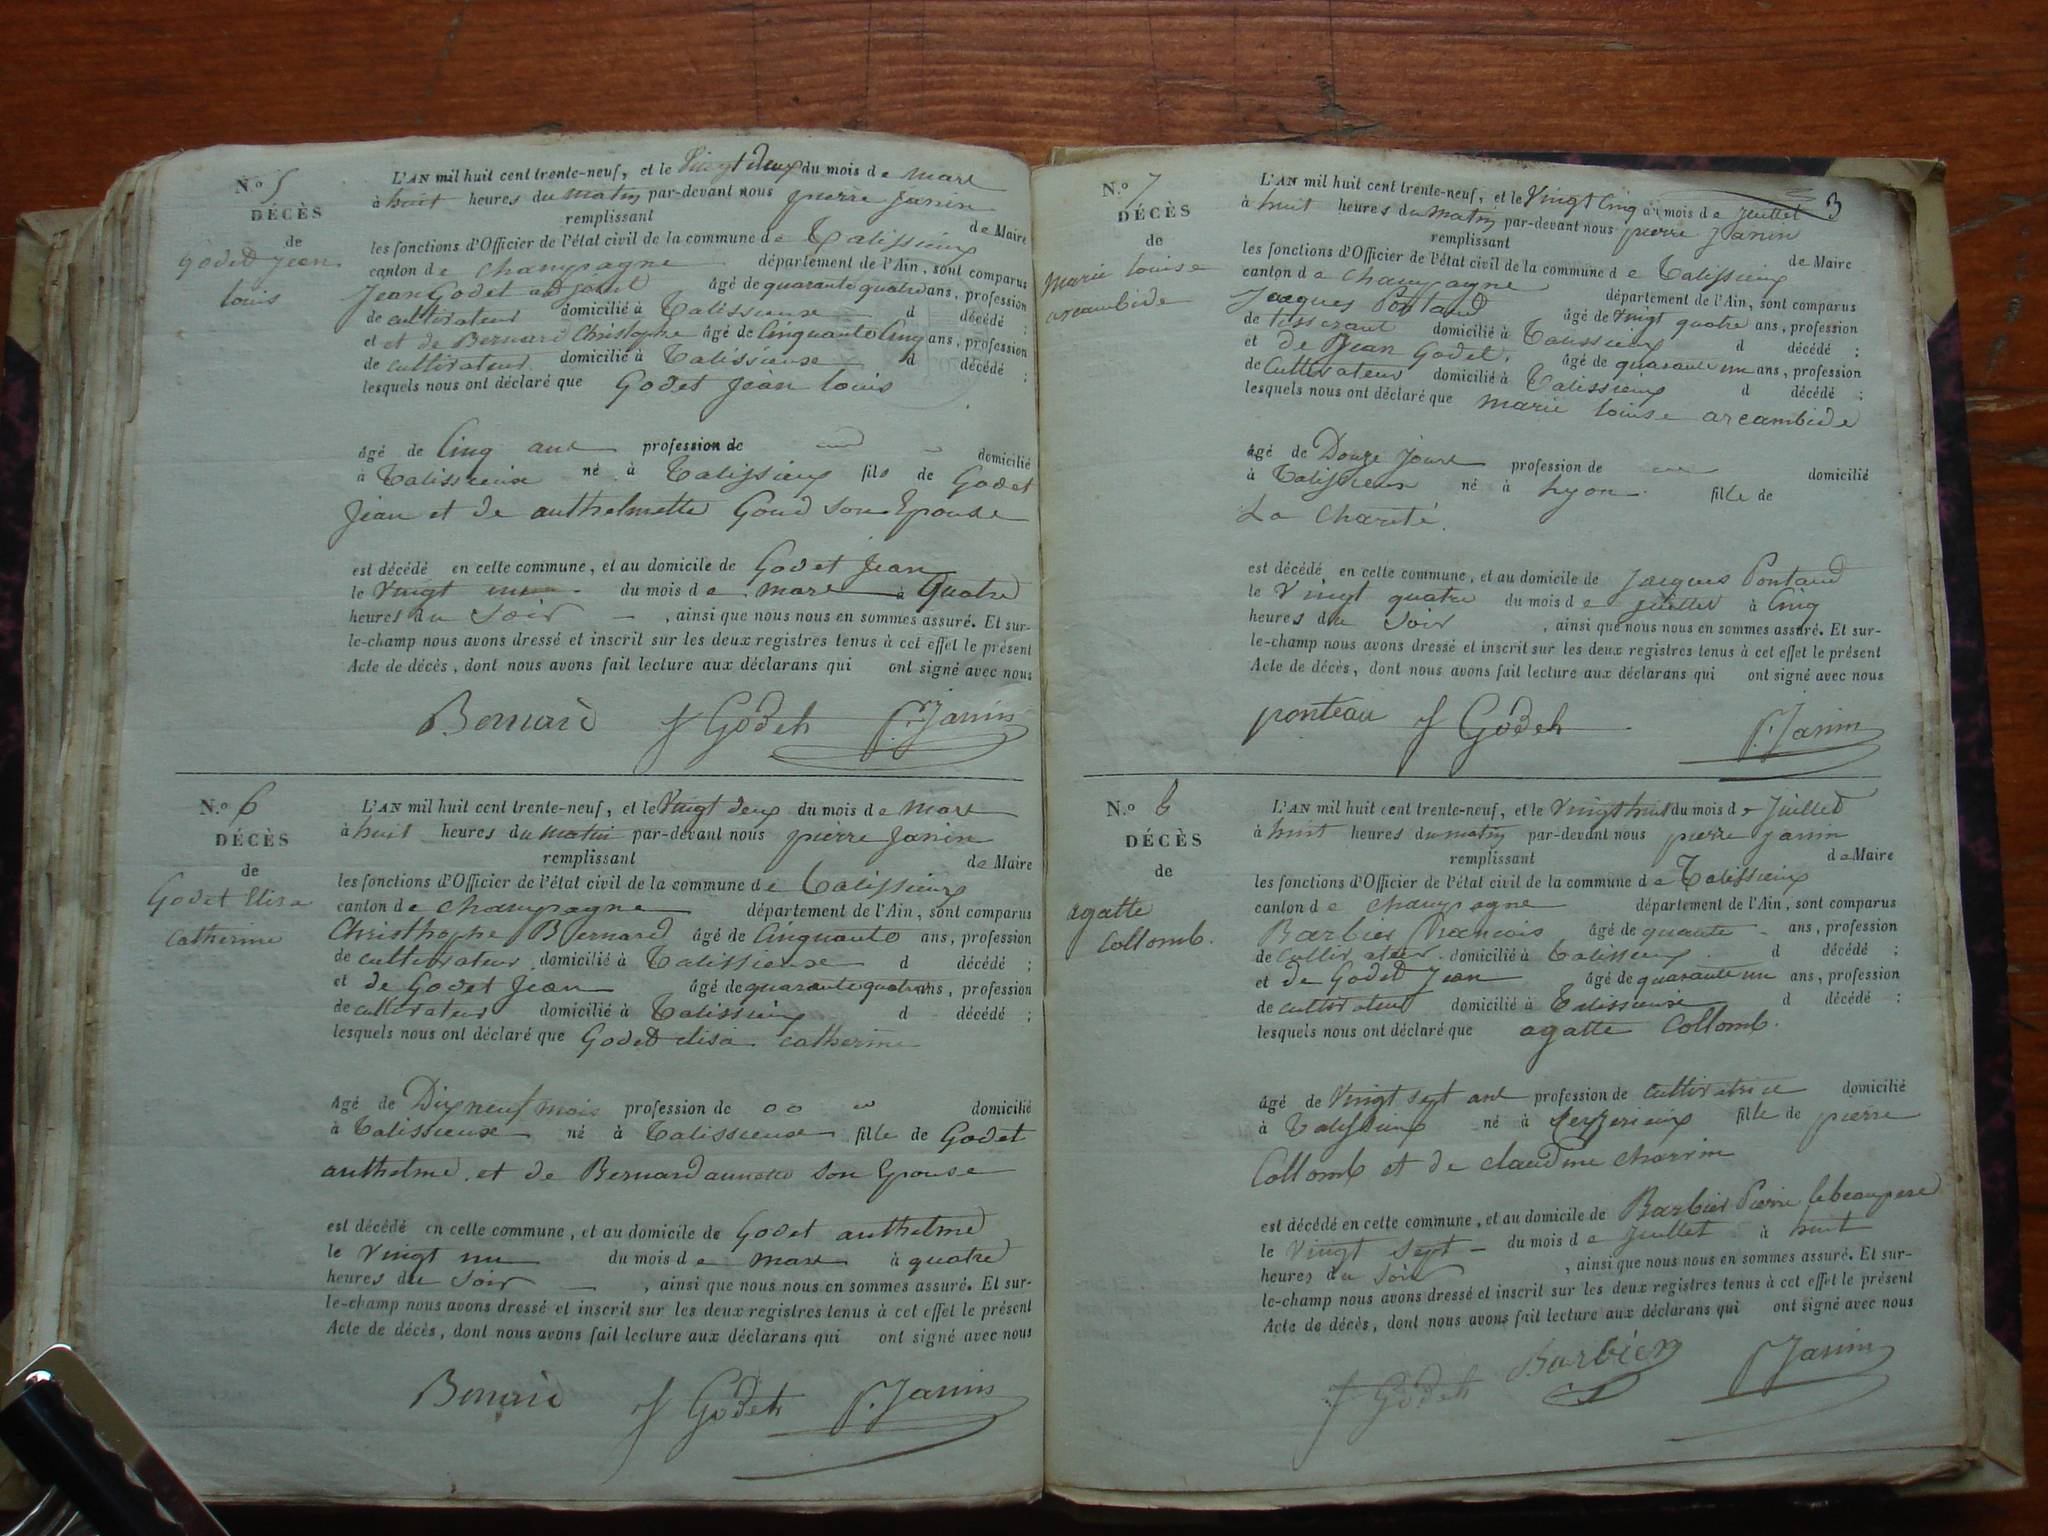 N.º 5
DÉCÈS
de
Godet Jean
louis
L'AN mil huit cent trente-neuf, et le Vingt deux du mois de mars
à huit heures du matin par-devant nous pierre Janin
remplissant de Maire
les fonctions d'Officier de l'état civil de la commune de Talissieux
canton de Champagne département de l'Ain, sont comparus
Jean Godet adjoint âgé de quarante quatre ans, profession
de cultivateur domicilié à Talissieux d décédé ;
et et de Bernard Christophe âgé de Cinquante Cinq ans, profession
de cultivateur domicilié à Talissieux d décédé ;
lesquels nous ont déclaré que Godet Jean louis
âgé de Cinq ans profession de domicilié
à Talissieux né à Talissieux fils de Godet
Jean et de anthelmette Goud son Epouse
est décédé en cette commune, et au domicile de Godet Jean
le Vingt un du mois de mars à Quatre
heures du Soir , ainsi que nous nous en sommes assuré. Et sur-
le-champ nous avons dressé et inscrit sur les deux registres tenus à cet effet le présent
Acte de décès, dont nous avons fait lecture aux déclarans qui ont signé avec nous
Bernard J Godeh P. Janin
N.º 6
DÉCÈS
de
Godet Elisa
Catherine
L'AN mil huit cent trente-neuf, et le Vingt deux du mois de mars
à huit heures du matin par-devant nous pierre Janin
remplissant de Maire
les fonctions d'Officier de l'état civil de la commune de Talissieux
canton de Champagne département de l'Ain, sont comparus
Christhophe Bernard âgé de Cinquante ans, profession
de cultivateur domicilié à Talissieux d décédé ;
et de Godet Jean âgé de quarante quatre ans, profession
de cultivateur domicilié à Talissieux d décédé ;
lesquels nous ont déclaré que Godet elisa catherine
âgé de Dix neuf mois profession de domicilié
à Talissieux né à Talissieux fille de Godet
anthelme et de Bernard annette son Epouse
est décédé en cette commune, et au domicile de Godet anthelme
le Vingt un du mois de mars à quatre
heures du Soir , ainsi que nous nous en sommes assuré. Et sur-
le-champ nous avons dressé et inscrit sur les deux registres tenus à cet effet le présent
Acte de décès, dont nous avons fait lecture aux déclarans qui ont signé avec nous
Bernard J Godeh P. Janin
3
N.º 7
DÉCÈS
de
Marie louise
arcambide
L'AN mil huit cent trente-neuf, et le Vingt Cinq du mois de juillet
à huit heures du matin par-devant nous pierre Janin
remplissant de Maire
les fonctions d'Officier de l'état civil de la commune de Talissieux
canton de Champagne département de l'Ain, sont comparus
Jacques Pontaud âgé de Vingt quatre ans, profession
de tisserant domicilié à Talissieux d décédé ;
et de Jean Godet âgé de quarante un ans, profession
de Cultivateur domicilié à Talissieux d décédé ;
lesquels nous ont déclaré que marie louise arcambide
âgé de Douze Jours profession de domicilié
à Talissieux né à Lyon fille de
La Charité.
est décédé en cette commune, et au domicile de Jacques Pontaud
le Vingt quatre du mois de juillet à Cinq
heures du Soir , ainsi que nous nous en sommes assuré. Et sur-
le-champ nous avons dressé et inscrit sur les deux registres tenus à cet effet le présent
Acte de décès, dont nous avons fait lecture aux déclarans qui ont signé avec nous
ponteau J Godeh P. Janin
N.º
DÉCÈS
de
agatte
Collomb.
L'AN mil huit cent trente-neuf, et le Vingt huit du mois de Juillet
à huit heures du matin par-devant nous pierre Janin
remplissant de Maire
les fonctions d'Officier de l'état civil de la commune de Talissieux
canton de Champagne département de l'Ain, sont comparus
Barbier francois âgé de quante ans, profession
de cultivateur domicilié à Talissieux d décédé ;
et de Godet Jean âgé de quarante un ans, profession
de cultivateur domicilié à Talissieux d décédé ;
lesquels nous ont déclaré que agatte Collomb.
âgé de Vingt sept ans profession de cultivatrice domicilié
à Talissieux né à fille de pierre
Collomb et de claudine charvin
est décédé en cette commune, et au domicile de Barbier Pierre le beaupere
le Vingt Sept du mois de Juillet à huit
heures du Soir , ainsi que nous nous en sommes assuré. Et sur-
le-champ nous avons dressé et inscrit sur les deux registres tenus à cet effet le présent
Acte de décès, dont nous avons fait lecture aux déclarans qui ont signé avec nous
J Godeh Barbier P Janin